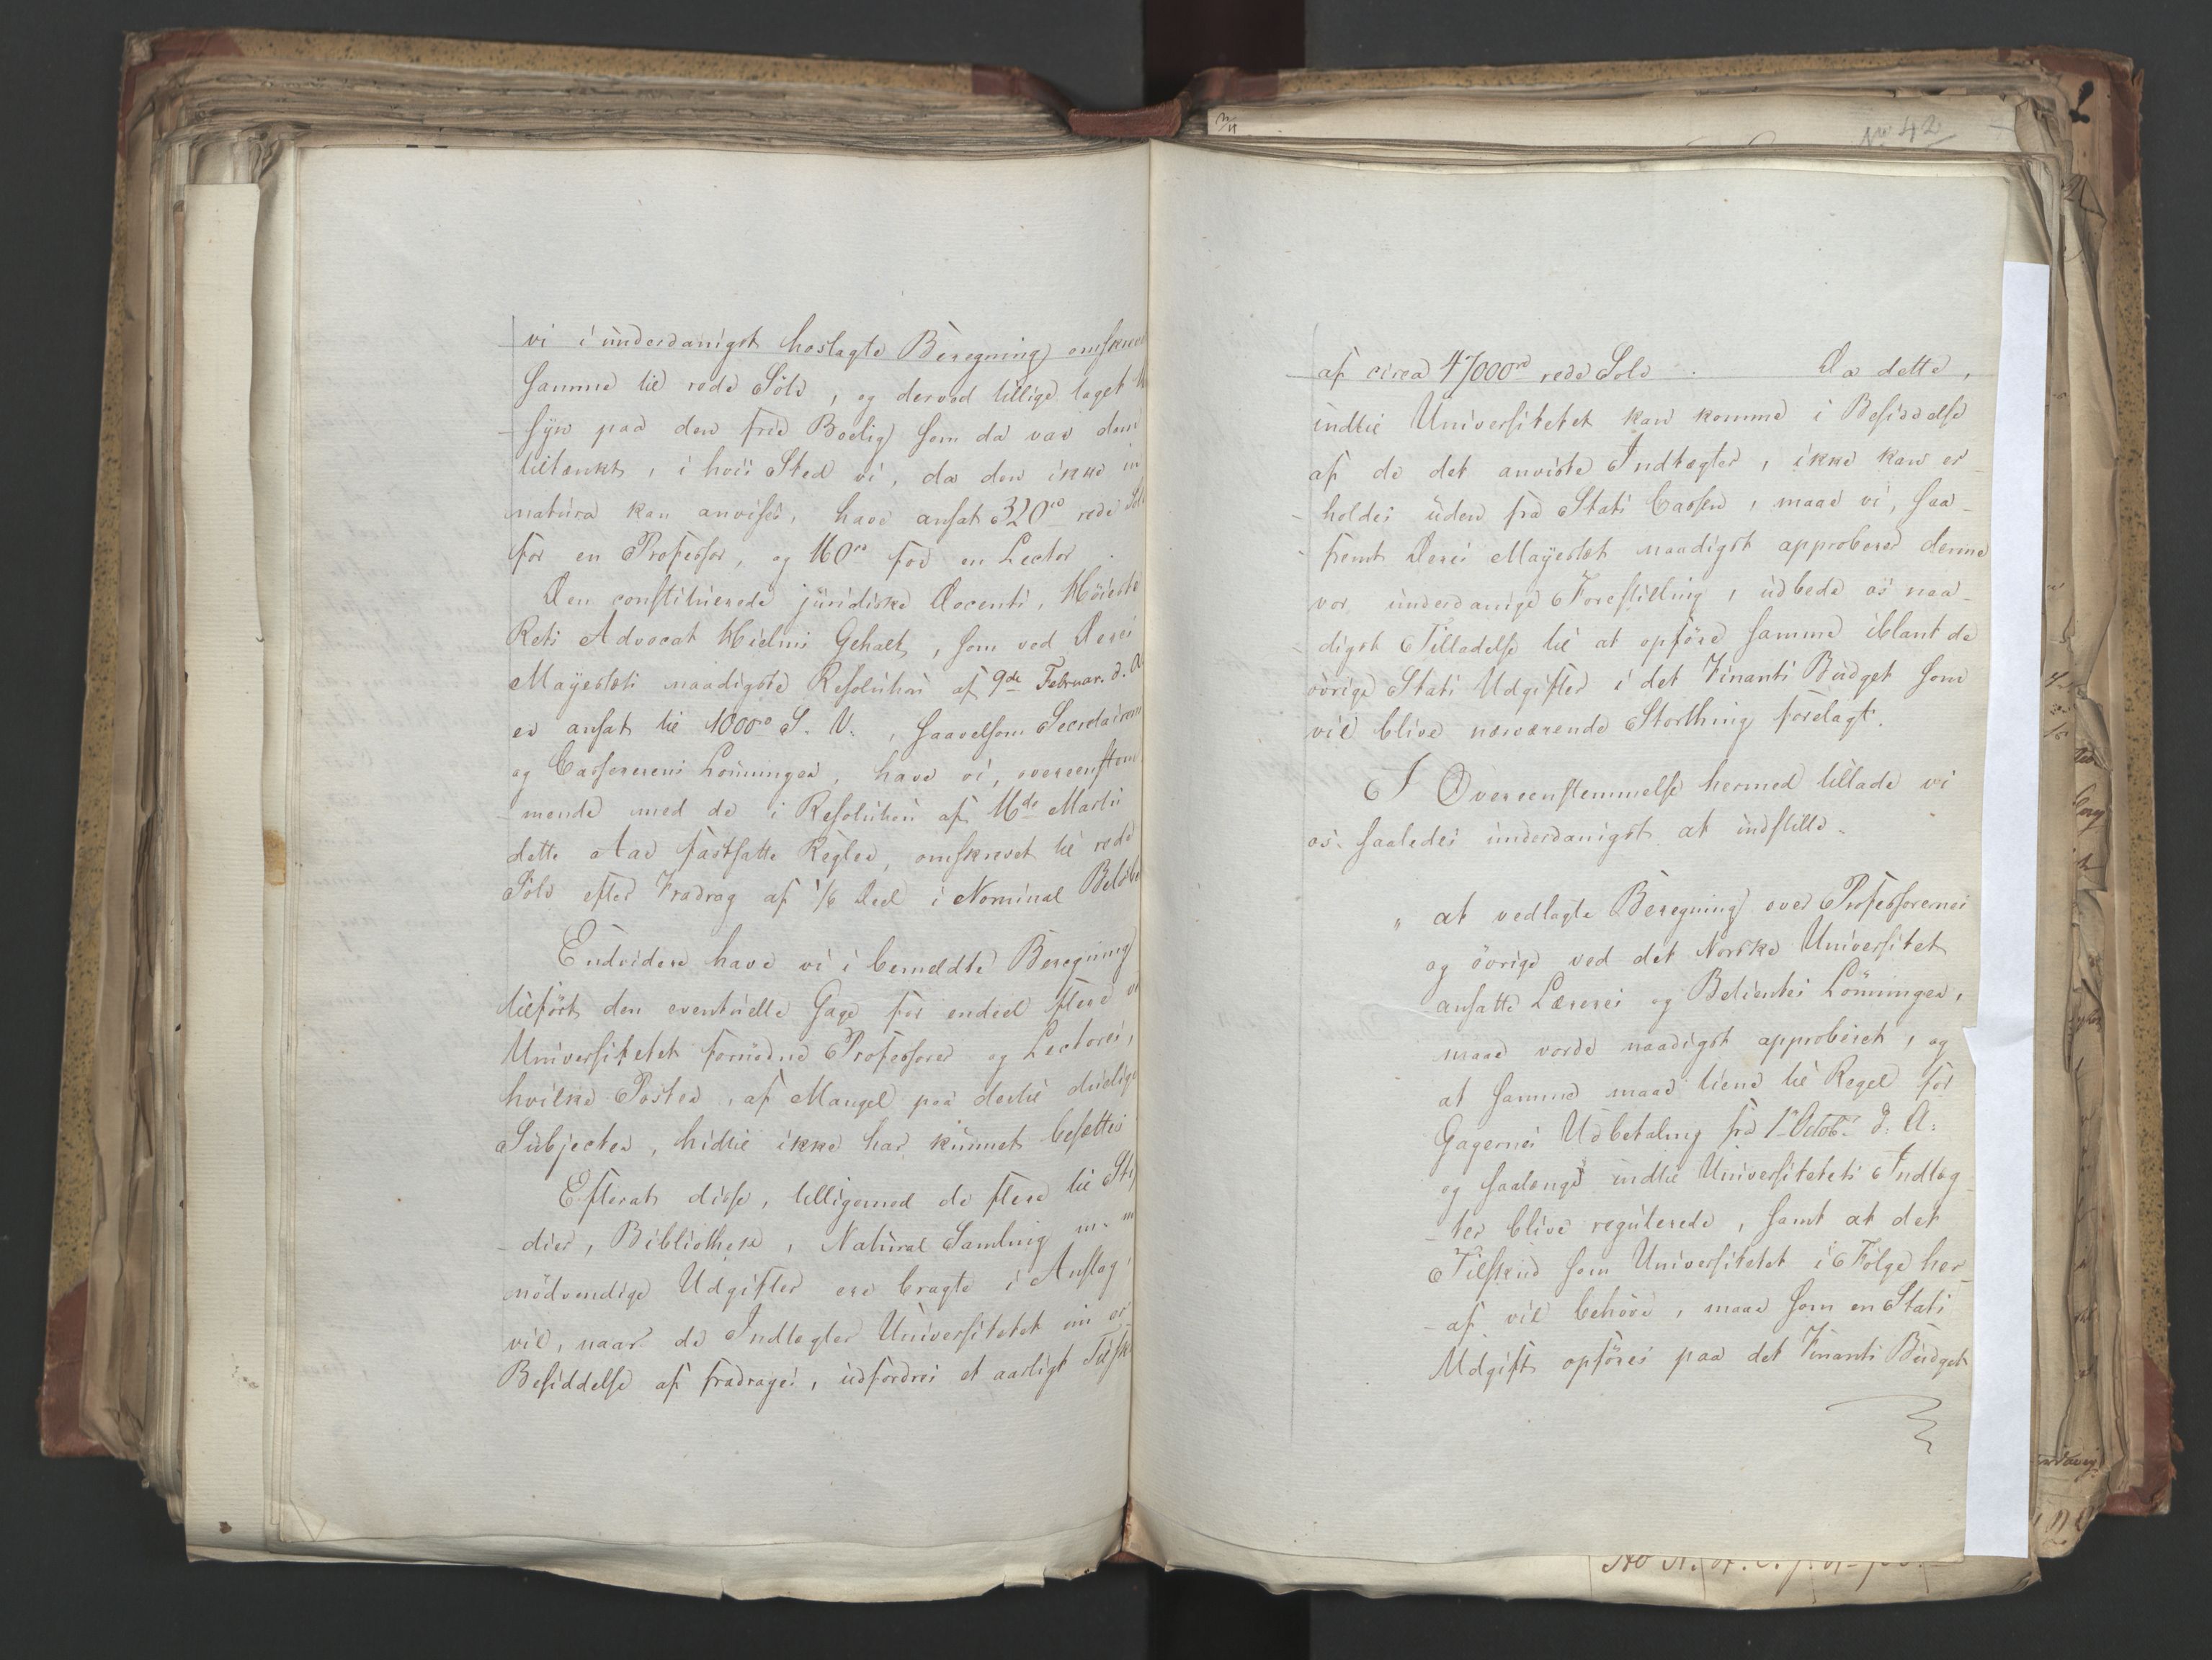 vi i underdanigst hoslagte Beregning omskrevet
samme til rede Sölv, og derved tillige taget
syn paa den frie Boelig som da var dem
tiltænkt, i hvis Sted vi, da den ikke in
natura kan anvises, have ansat 320 rd rede Sölv
for en Professor, og 160 rd for en Lector.
Den constituerede juridiske Docents, Höieste
Rets Advocat Hielms Gehalt, som ved Deres
Mayestæts naadigste Resolution af 9de Februar. d. A.
er ansat til 1000 rd S. V., saavelsom Secretairens
og Cassererens Lönninger, have vi, overeenstem
mende med de i Resolution af 16de Martii
dette Aar fastsatte Regler, omskrevet til rede
Sölv efter Fradrag af 1/6 Deel i Nominal Belöbet
Endvidere have vi i bemeldte Beregning
tilfört den eventuelle Gage for endeel flere
Universitetet fornödne Professorer og Lectores,
hvilke Poster, af Mangel paa dertil duelige
Subjecter, hidtil ikke har kunnet besættes
Efterat disse, tilligemed de flere til Sti
dier, Bibliothek, Natural Samling m. m
nödvendige Udgifter ere bragte i Anslag,
vil, naar de Indtægter Universitetet nu er
Besiddelse af fradrages, udfordres et aarligt Tilsk
N 42
af circa 47000 rd rede Sölv. Da dette,
indtil Universitetet kan komme i Besiddelse
af de det anviste Indtægter, ikke kan er
holdes uden fra Stats Cassen, maae vi, saa
fremt Deres Mayestæt naadigst approberer denne
vor underdanige Forestilling, udbede os naa
digst Tilladelse til at opföre samme iblant de
övrige Stats Udgifter i det Finants Budget som
vil blive nærværende Storthing forelagt.
I Overeenstemmelse hermed tillade vi
os saaledes underdanigst at indstille.
" at vedlagte Beregning over Professorernes
og övrige ved det Norske Universitet
ansatte Læreres og Betientes Lönninger,
maae vorde naadigst approberet, og
at samme maae tiene til Regel for
Gagernes Udbetaling fra 1 Octobr d. A.
og saalænge indtil Universitetets Indtæg
ter blive regulerede, samt at det
Tilskud som Universitetet i Fölge her
af vil behöve, maae som en Stats
Udgift opföres paa det Finants Budget